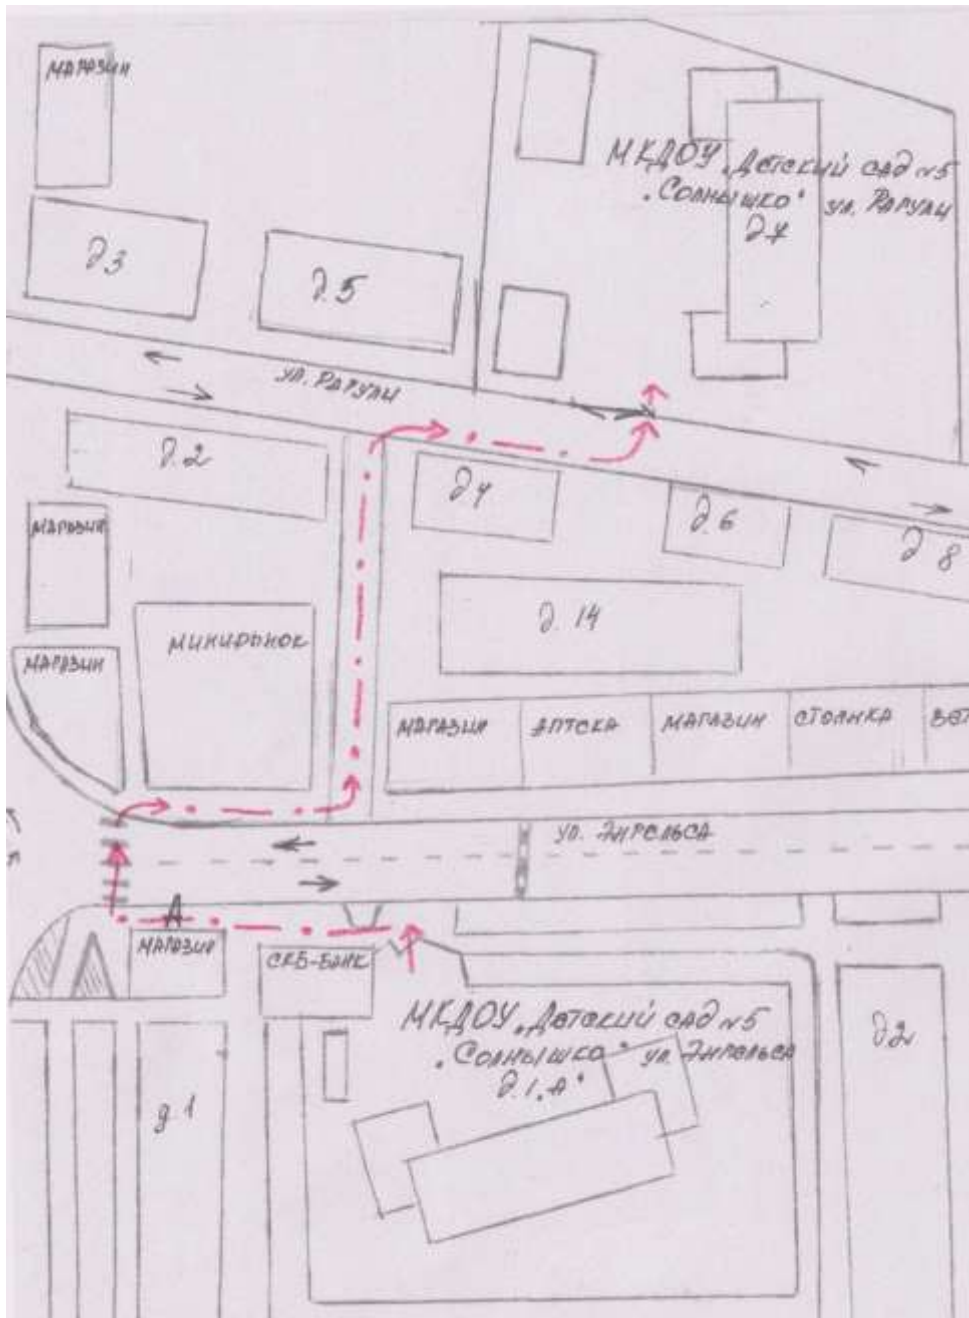 МАГАЗИН
МКДОУ „Детский сад №5
„Солнышко“ ул. РАГУЛИ
д7
д3
д.5
ул. РАГУЛИ
д.2
д4
д.6
д 8
МАГАЗИН
д. 14
МИНИРЫНОК
МАГАЗИН
МАГАЗИН
АПТЕКА
МАГАЗИН
СТОЯНКА
ВЕТ
ул. ЭНГЕЛЬСА
А
МАГАЗИН
СКБ-БАНК
МКДОУ „Детский сад №5
„Солнышко“ ул. ЭНГЕЛЬСА
д.1.А“
д2
д.1